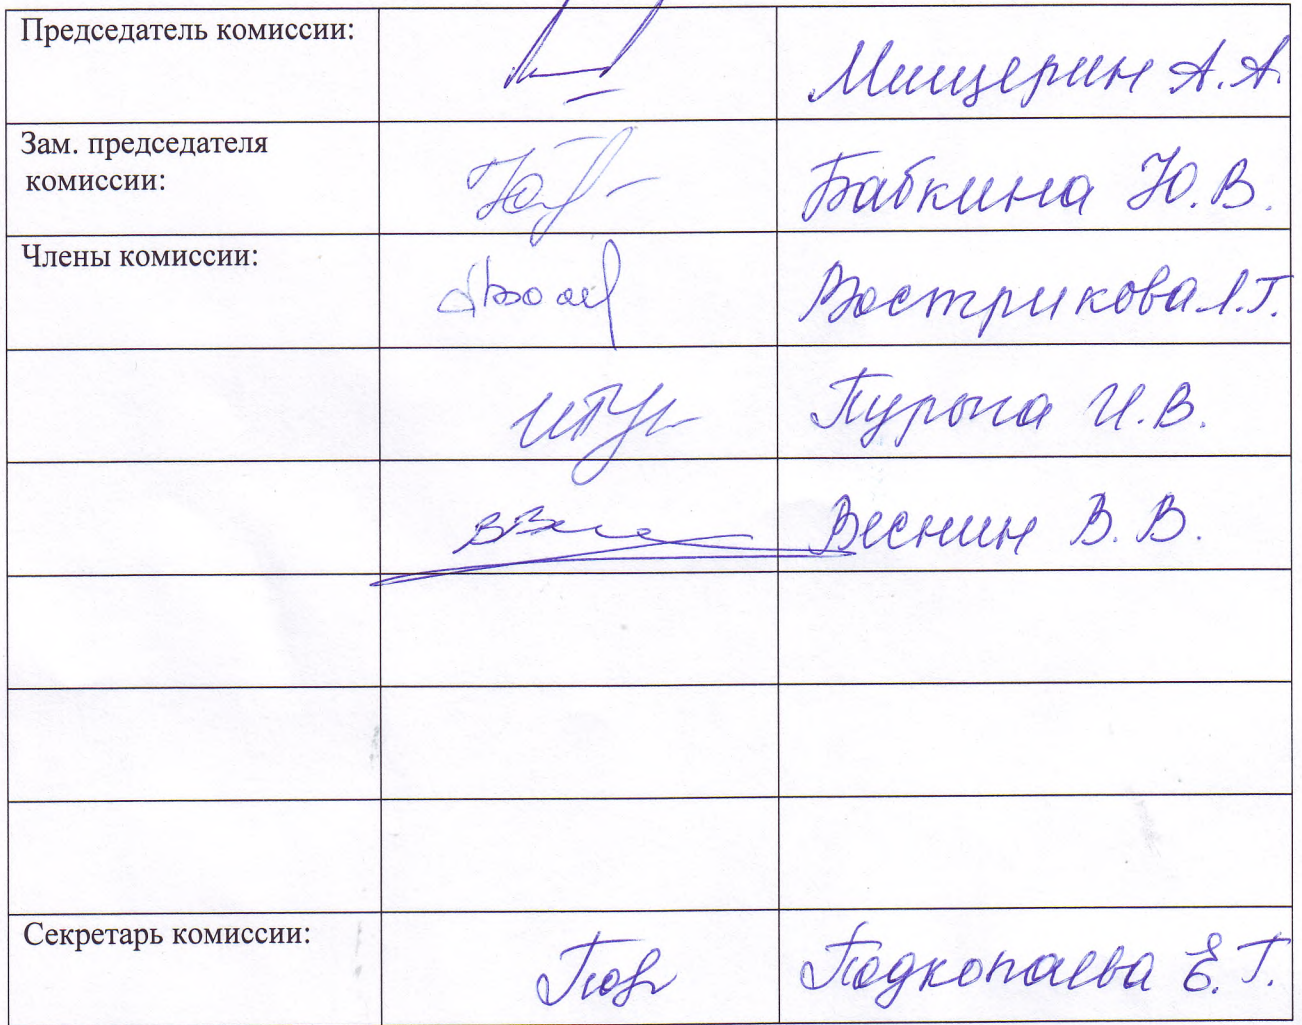 Председатель комиссии:
Мищерин А.А.
Зам. председателя
комиссии:
Бабкина Ю.В.
Члены комиссии:
Вострикова Л.Г.
Пурыга И.В.
Веснин В.В.
Секретарь комиссии:
Подкопаева Е.Г.